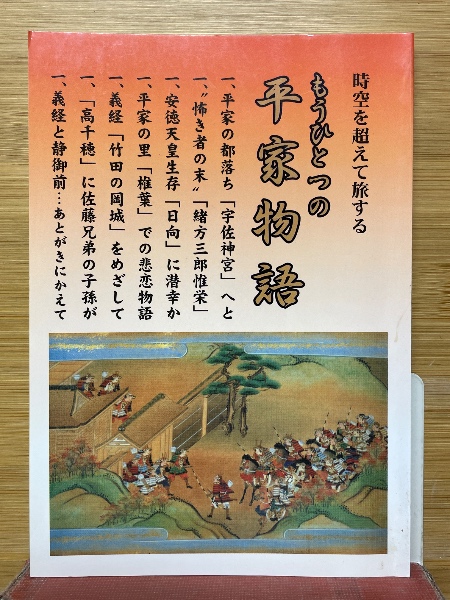 時空を超えて旅する
もうひとつの
平家物語
一、平家の都落ち「宇佐神宮」へと
一、〝怖き者の末〟「緒方三郎惟栄」
一、安徳天皇生存「日向」に潜幸か
一、平家の里「椎葉」での悲恋物語
一、義経「竹田の岡城」をめざして
一、「高千穂」に佐藤兄弟の子孫が
一、義経と静御前…あとがきにかえて